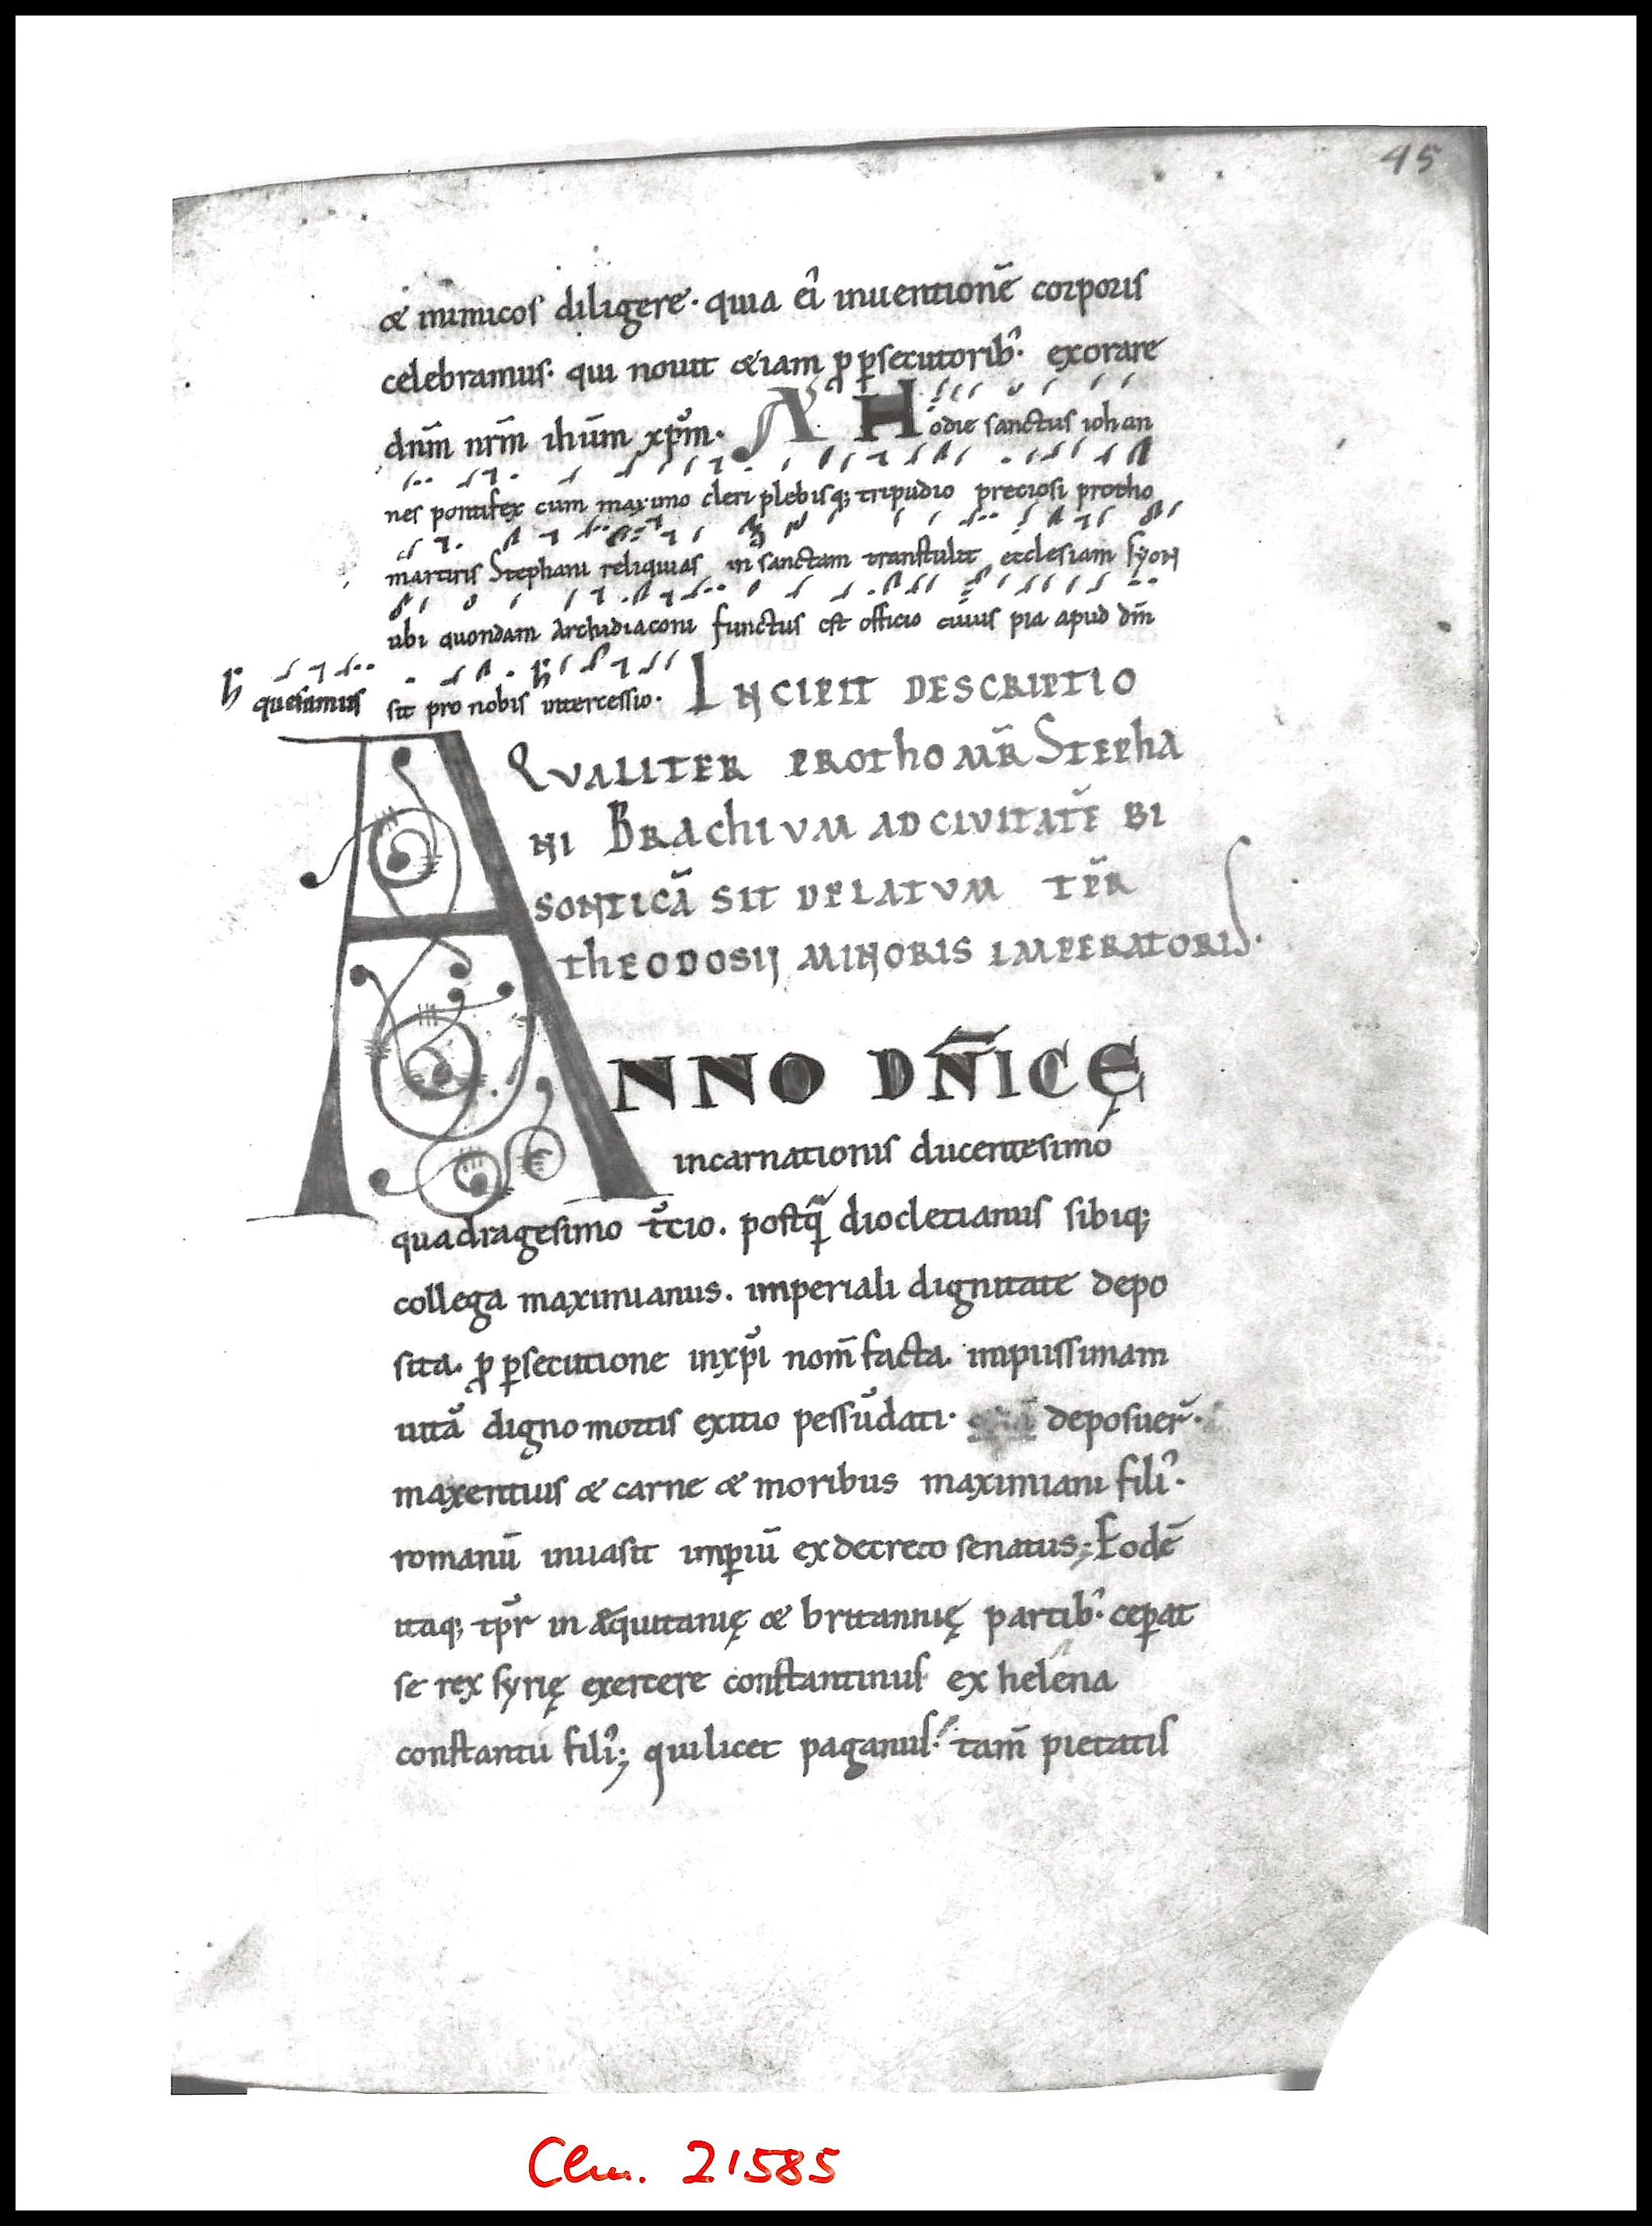 45
& inimicos diligere. quia ei᾽ inuentionē corporis
celebramus. qui nouit &iam ꝓ ꝑsecutorib᾽. exorare
dnm̄ nrm̄ ihūm xp̄m. A Hodie sanctus iohan
nes pontifex cum maximo cleri plebisq; tripudio preciosi protho
martiris Stephani reliquias in sanctam transtulit ecclesiam syon
ubi quondam Archidiaconi functus est officio cuius pia apud dm̄
quesumus sit pro nobis intercessio. INCIPIT DESCRIPTIO
QVALITER PROTHOMR̄ STEPHA
NI BRACHIVM AD CIVITATĒ BI
SONTICĀ SIT DELATVM TEP̄R
THEODOSIJ MINORIS IMPERATORIS.
ANNO DN̄ICĘ
incarnationis ducentesimo
quadragesimo t̄cio. postq̄ diocletianus sibiq;
collega maximianus. imperiali dignitate depo
sita. ꝓ ꝑsecutione inxp̄i nom̄ facta. impiissimam
uitā digno mortis exitio pessūdati. deposuer̄.
maxentius & carne & moribus maximiani fili᾽.
romanū inuasit imꝑiū ex decreto senatus; Eodē
itaq; tp̄r in Aequitanię & britannię partib᾽. ceꝑat
se rex syrię exercere constantinus ex helena
constantii fili᾽; qui licet paganus. tam̄ pietatis
Clm. 21585